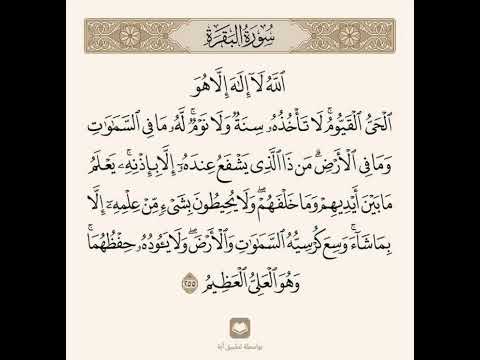 سُورَةُ البَقَرَةِ
ٱللَّهُ لَآ إِلَٰهَ إِلَّا هُوَ
ٱلْحَىُّ ٱلْقَيُّومُ ۚ لَا تَأْخُذُهُۥ سِنَةٌ وَلَا نَوْمٌ ۚ لَّهُۥ مَا فِى ٱلسَّمَٰوَٰتِ
وَمَا فِى ٱلْأَرْضِ ۗ مَن ذَا ٱلَّذِى يَشْفَعُ عِندَهُۥٓ إِلَّا بِإِذْنِهِۦ ۚ يَعْلَمُ
مَا بَيْنَ أَيْدِيهِمْ وَمَا خَلْفَهُمْ ۖ وَلَا يُحِيطُونَ بِشَىْءٍ مِّنْ عِلْمِهِۦٓ إِلَّا
بِمَا شَآءَ ۚ وَسِعَ كُرْسِيُّهُ ٱلسَّمَٰوَٰتِ وَٱلْأَرْضَ ۖ وَلَا يَـُٔودُهُۥ حِفْظُهُمَا ۚ
وَهُوَ ٱلْعَلِىُّ ٱلْعَظِيمُ ٢٥٥
بواسطة تطبيق آية